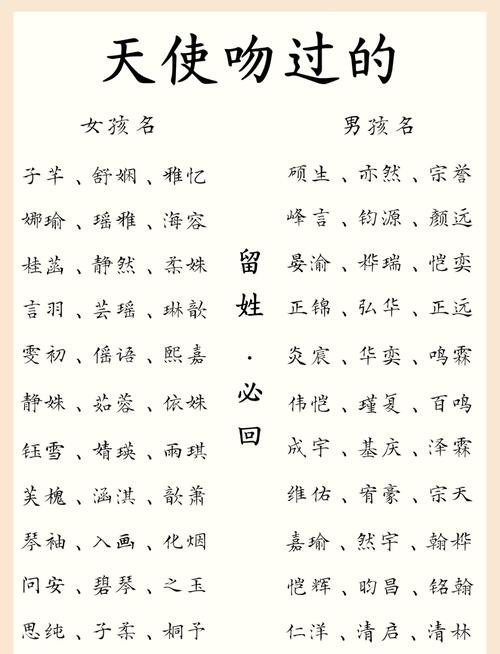 天使吻过的
女孩名
子芊、舒娴、雅忆
娜瑜、瑶雅、海容
桂菡、静然、柔姝
言羽、芸瑶、琳歆
雯初、傜语、熙嘉
静姝、茹蓉、依姝
钰雪、婧瑛、雨琪
芙槐、涵淇、歆萧
琴袖、入画、化烟
问安、碧琴、之玉
思纯、子柔、桐予
留姓·必回
男孩名
硕生、亦然、宗誉
峰言、钧源、颜远
晏渝、桦瑞、恺奕
正锦、弘华、正远
炎宸、华奕、鸣霖
伟恺、瑾复、百鸣
成宇、基庆、泽霖
维佑、宥豪、宗天
嘉瑜、然宇、翰桦
恺辉、昀昌、铭翰
仁洋、清启、清林